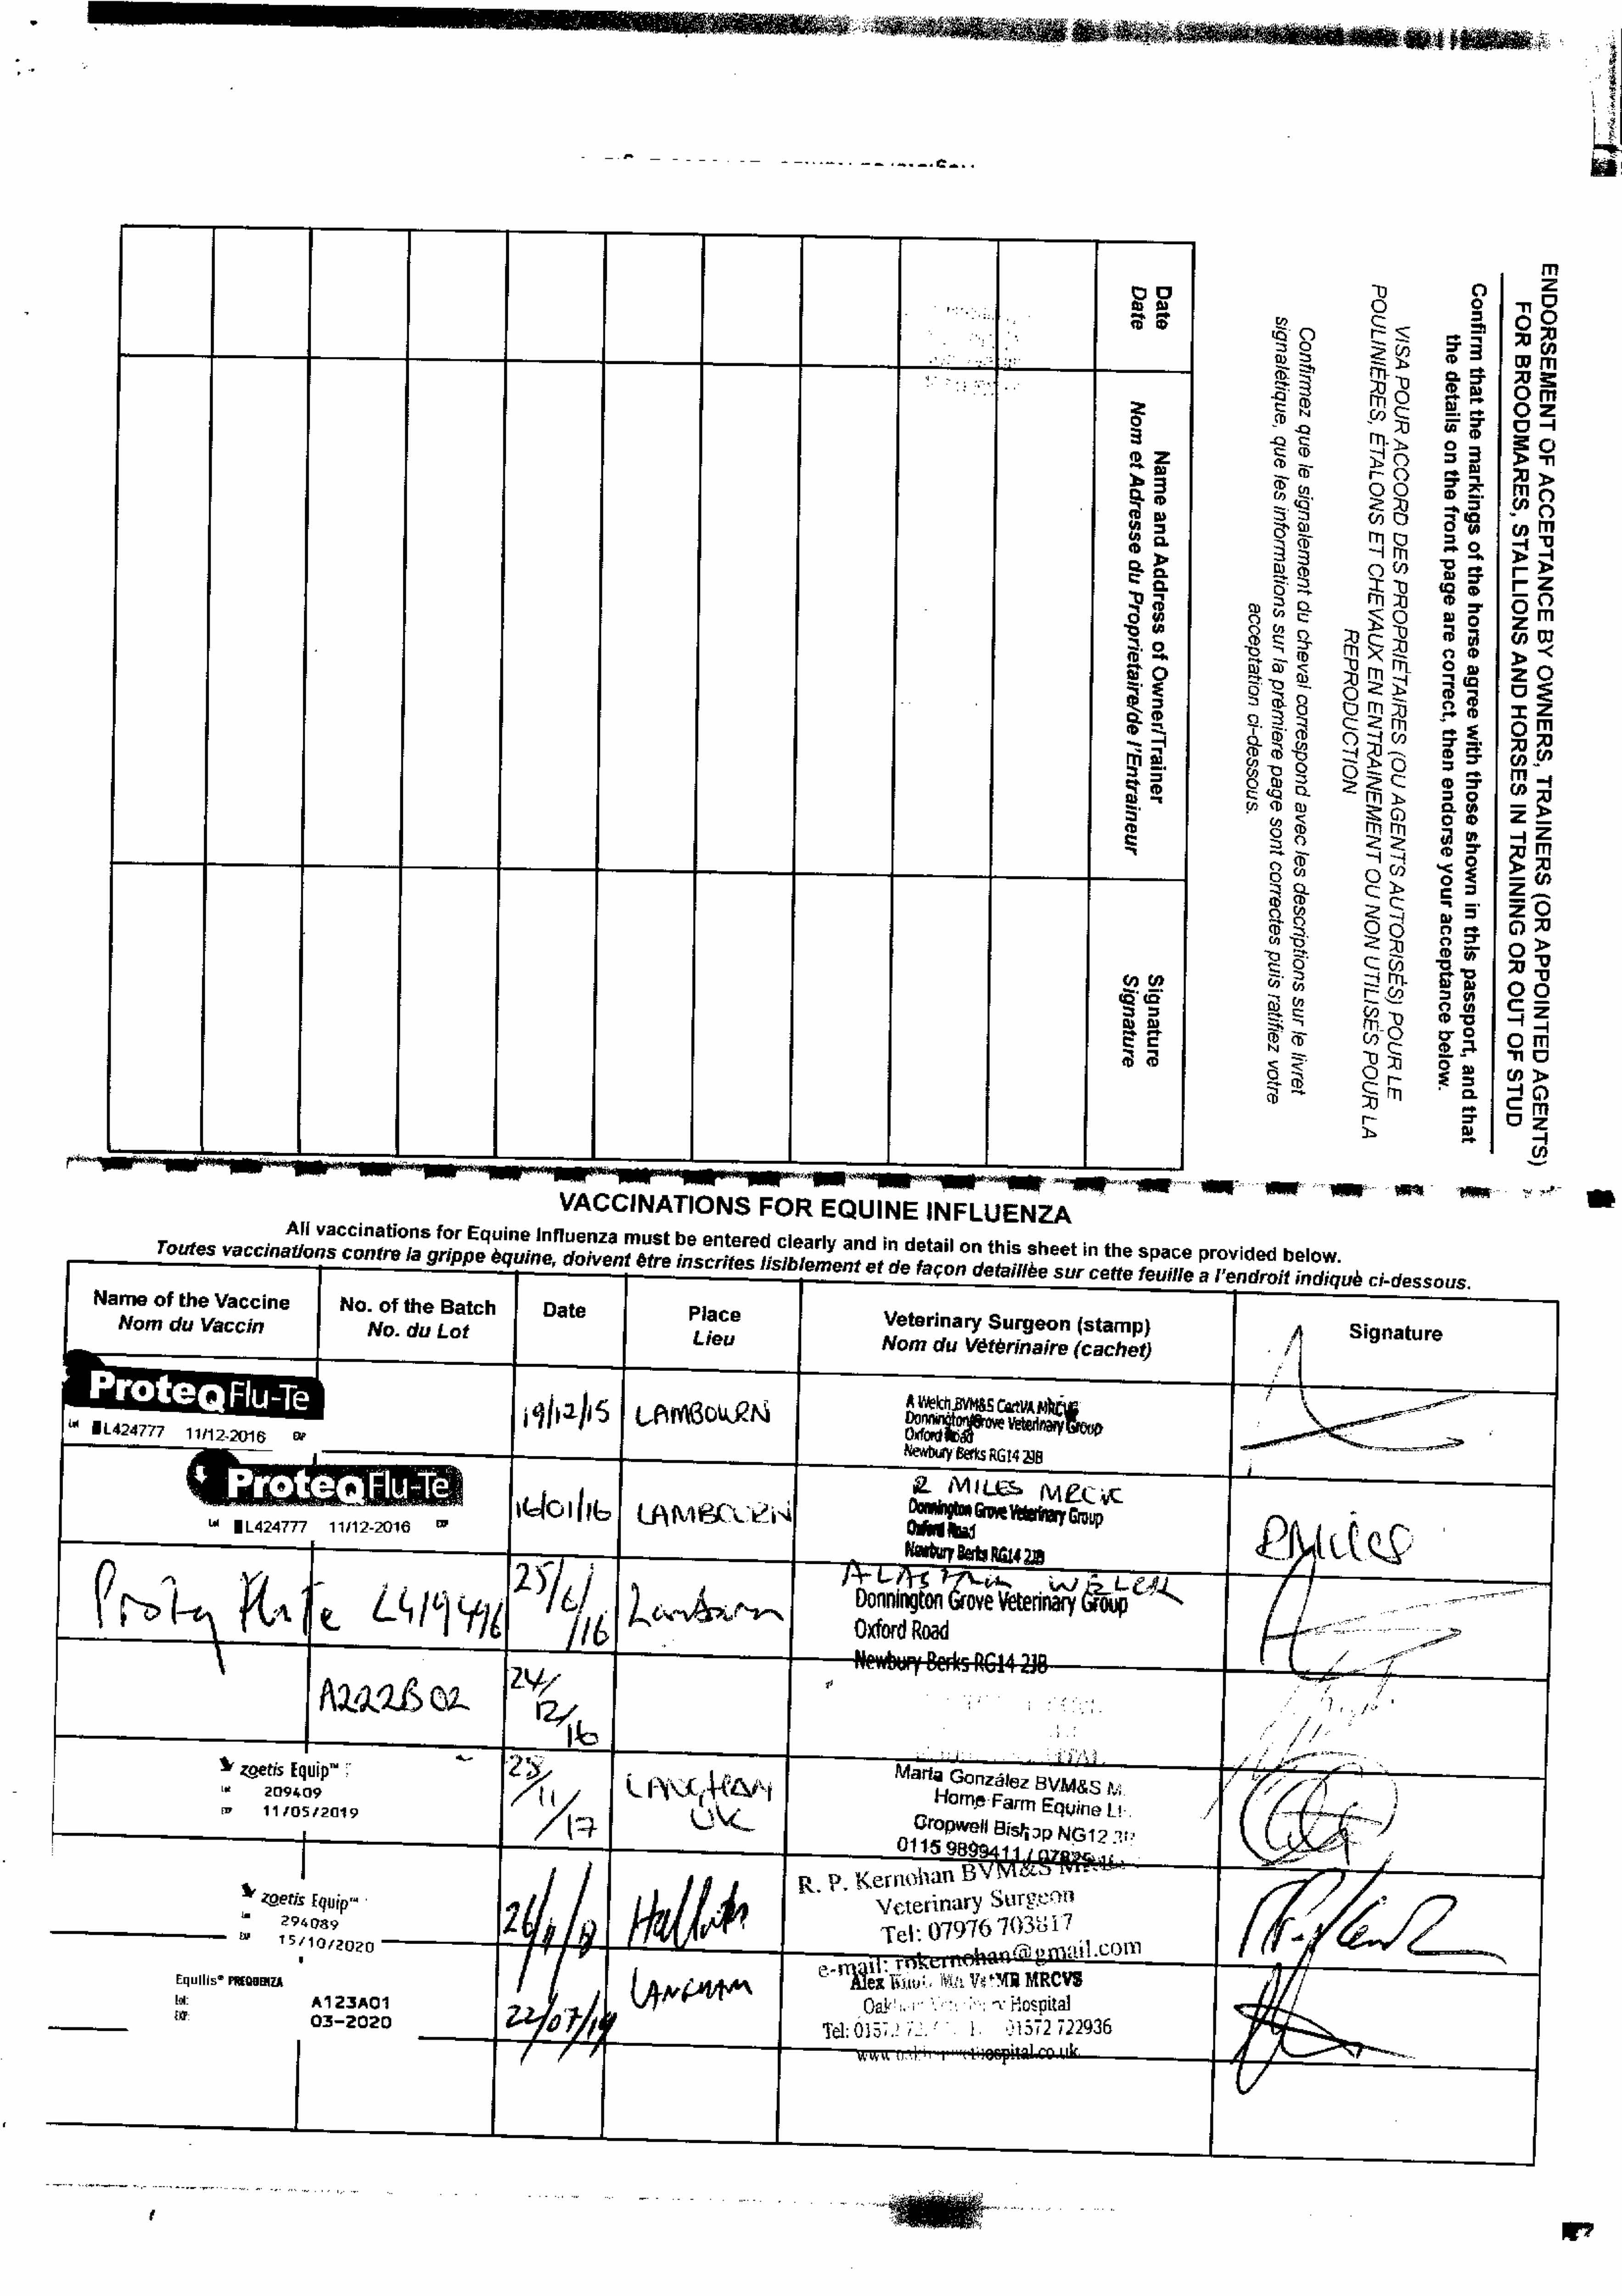 ENDORSEMENT OF ACCEPTANCE BY OWNERS, TRAINERS (OR APPOINTED AGENTS)
FOR BROODMARES, STALLIONS AND HORSES IN TRAINING OR OUT OF STUD
Confirm that the markings of the horse agree with those shown in this passport, and that
the details on the front page are correct, then endorse your acceptance below.
VISA POUR ACCORD DES PROPRIÉTAIRES (OU AGENTS AUTORISÉS) POUR LE
POULINIÈRES, ÉTALONS ET CHEVAUX EN ENTRAINEMENT OU NON UTILISÉS POUR LA
REPRODUCTION
Confirmez que le signalement du cheval correspond avec les descriptions sur le livret
signalétique, que les informations sur la prémiere page sont correctes puis ratifiez votre
acceptation ci-dessous.
Date
Date
Name and Address of Owner/Trainer
Nom et Adresse du Proprietaire/de l'Entraineur
Signature
Signature
VACCINATIONS FOR EQUINE INFLUENZA
All vaccinations for Equine Influenza must be entered clearly and in detail on this sheet in the space provided below.
Toutes vaccinations contre la grippe èquine, doivent être inscrites lisiblement et de façon detaillèe sur cette feuille a l'endroit indiquè ci-dessous.
Name of the Vaccine
Nom du Vaccin
No. of the Batch
No. du Lot
Date
Place
Lieu
Veterinary Surgeon (stamp)
Nom du Vétèrinaire (cachet)
Signature
ProteqFlu-Te
Lot L424777 11/12-2016 EXP
19/12/15
LAMBOURN
A Welch BVM&S CertVA MRCVS
Donnington Grove Veterinary Group
Oxford Road
Newbury Berks RG14 2JB
ProteqFlu-Te
Lot L424777 11/12-2016 EXP
16/01/16
LAMBOURN
R MILES MRCVS
Donnington Grove Veterinary Group
Oxford Road
Newbury Berks RG14 2JB
RMiles
L419496
25/6/16
Lambourn
Donnington Grove Veterinary Group
Oxford Road
Newbury Berks RG14 2JB
A222B02
24/12/16
zoetis Equip™
Lot 209409
EXP 11/05/2019
28/11/17
LANGHAM
UK
Marta González BVM&S M
Home Farm Equine
Cropwell Bishop NG12
0115 9899411 /
zoetis Equip™
Lot 294089
EXP 15/10/2020
26/11/18
R. P. Kernohan BVM&S
Veterinary Surgeon
Tel: 07976 703817
e-mail: rpkernohan@gmail.com
Equilis® PREQUENZA
lot: A123A01
EXP: 03-2020
22/07/19
LANGHAM
Alex VetMB MRCVS
Hospital
Tel: 01572 722936